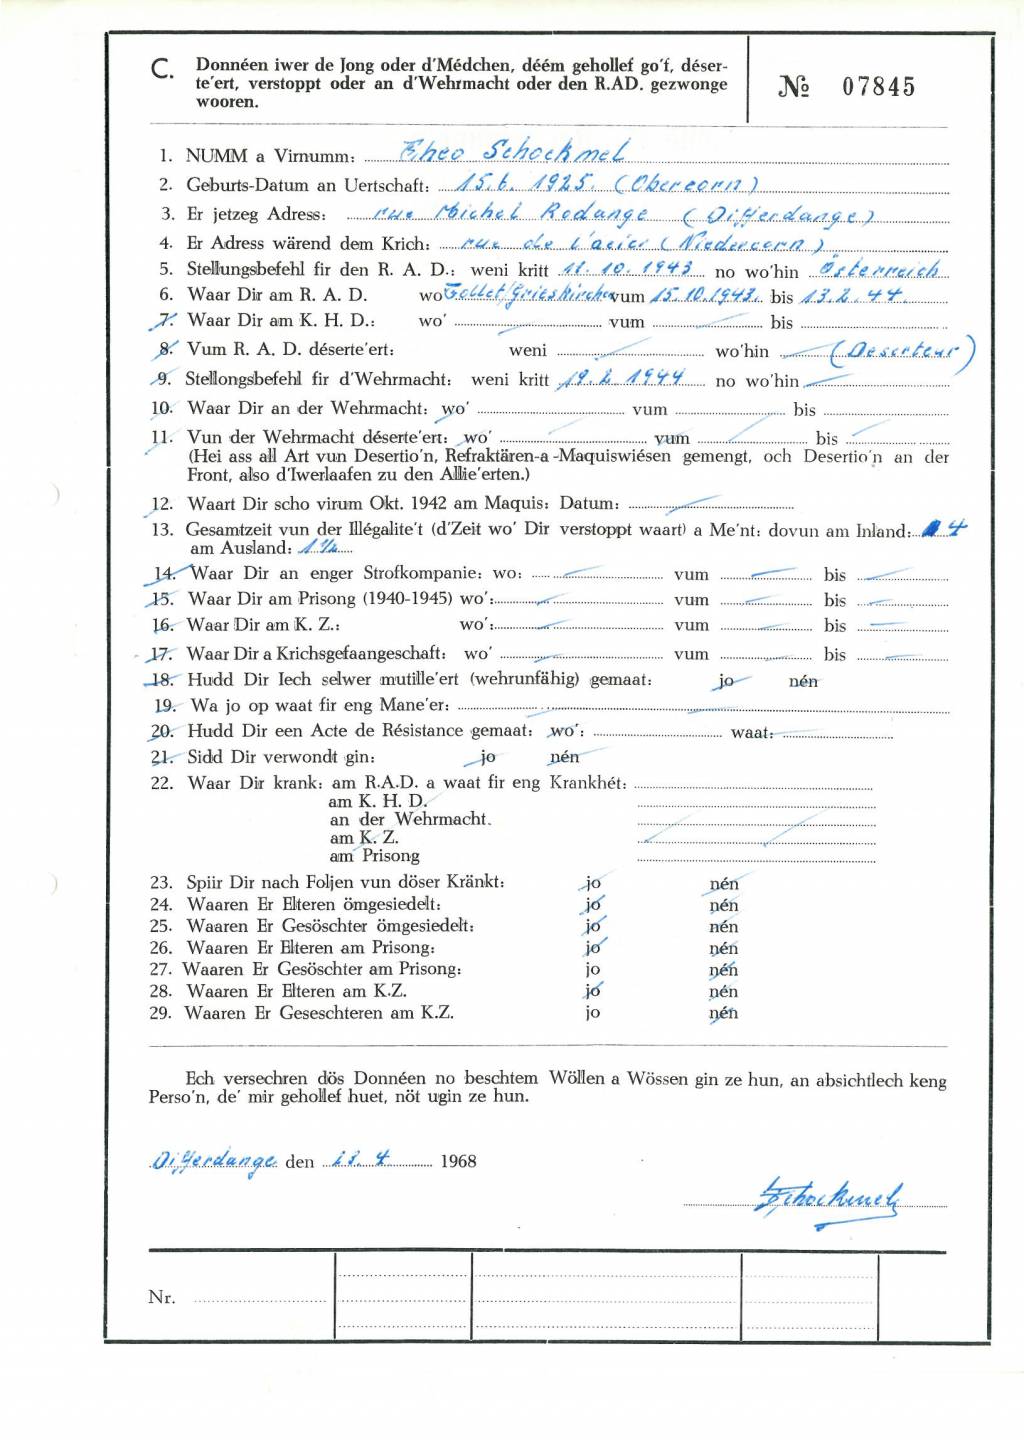 C. Donnéen iwer de Jong oder d'Médchen, déém gehollef go'f, déser-
te'ert, verstoppt oder an d'Wehrmacht oder den R.AD. gezwonge
wooren.
№ 07845
1. NUMM a Virnumm: Theo Schockmel
2. Geburts-Datum an Uertschaft: 15.6. 1925. (Obercorn)
3. Er jetzeg Adress: rue Michel Rodange (Differdange)
4. Er Adress wärend dem Krich: rue de l'acier (Niedercorn)
5. Stellungsbefehl fir den R. A. D.: weni kritt 11. 10. 1943 no wo'hin Österreich
6. Waar Dir am R. A. D. wo Tollet/Grieskirchen vum 15.10.1943. bis 13.2.44.
7. Waar Dir am K. H. D.: wo' vum bis
8. Vum R. A. D. déserte'ert: weni wo'hin (Deserteur)
9. Stellongsbefehl fir d'Wehrmacht: weni kritt 19.2.1944 no wo'hin
10. Waar Dir an der Wehrmacht: wo' vum bis
11. Vun der Wehrmacht déserte'ert: wo' vum bis
(Hei ass all Art vun Desertio'n, Refraktären-a-Maquiswiésen gemengt, och Desertio'n an der
Front, also d'Iwerlaafen zu den Allie'erten.)
12. Waart Dir scho virum Okt. 1942 am Maquis: Datum:
13. Gesamtzeit vun der Illégalite't (d'Zeit wo' Dir verstoppt waart) a Me'nt: dovun am Inland: 4
am Ausland: 1 1/2
14. Waar Dir an enger Strofkompanie: wo: vum bis
15. Waar Dir am Prisong (1940-1945) wo': vum bis
16. Waar Dir am K. Z.: wo': vum bis
17. Waar Dir a Krichsgefaangeschaft: wo' vum bis
18. Hudd Dir Iech selwer mutille'ert (wehrunfähig) gemaat: jo nén
19. Wa jo op waat fir eng Mane'er:
20. Hudd Dir een Acte de Résistance gemaat: wo': waat:
21. Sidd Dir verwondt gin: jo nén
22. Waar Dir krank: am R.A.D. a waat fir eng Krankhét:
am K. H. D.
an der Wehrmacht.
am K. Z.
am Prisong
23. Spiir Dir nach Foljen vun döser Kränkt: jo nén
24. Waaren Er Elteren ömgesiedelt: jo nén
25. Waaren Er Gesöschter ömgesiedelt: jo nén
26. Waaren Er Elteren am Prisong: jo nén
27. Waaren Er Gesöschter am Prisong: jo nén
28. Waaren Er Elteren am K.Z. jo nén
29. Waaren Er Geseschteren am K.Z. jo nén
Ech versechren dös Donnéen no beschtem Wöllen a Wössen gin ze hun, an absichtlech keng
Perso'n, de' mir gehollef huet, nöt ugin ze hun.
Differdange den 23. 4 1968
Schockmel
Nr.